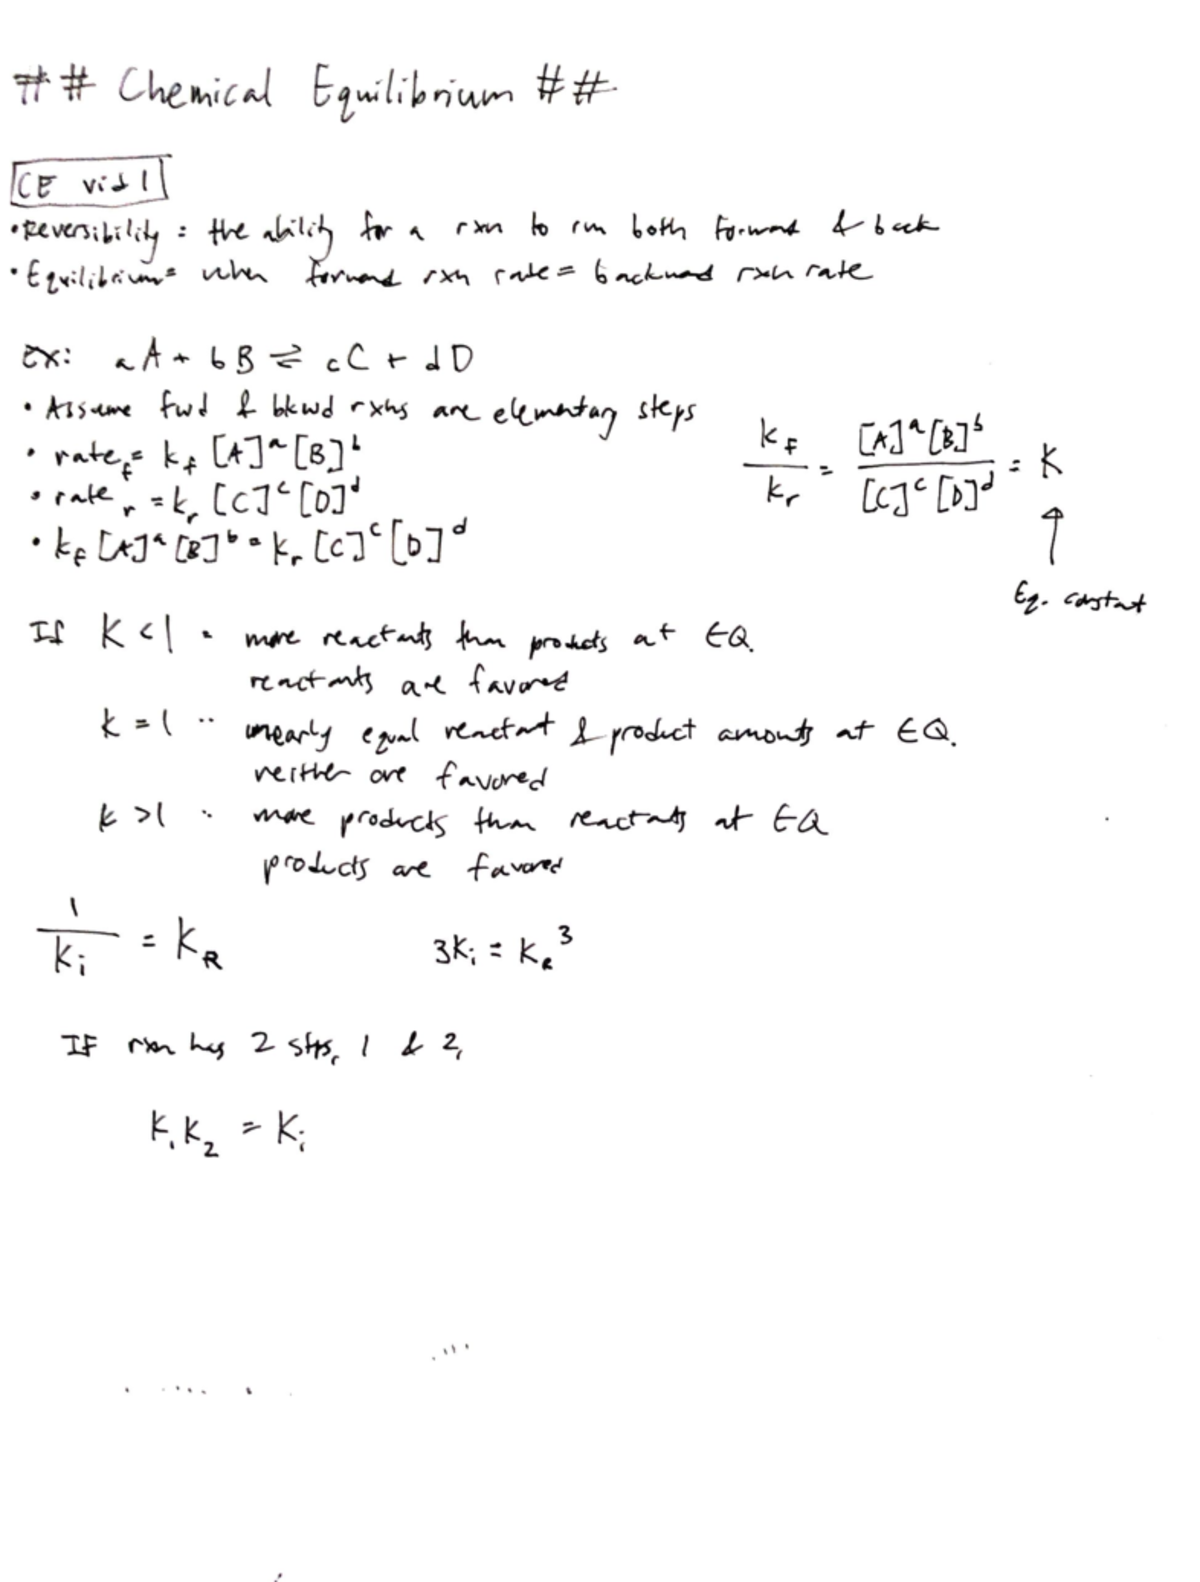 ## Chemical Equilibrium ##
CE vid 1
• Reversibility = the ability for a rxn to run both forward & back
• Equilibrium = when forward rxn rate = backward rxn rate
Ex: aA + bB ⇌ cC + dD
• Assume fwd & bkwd rxns are elementary steps
• rate_f = k_f [A]^a [B]^b
• rate_r = k_r [C]^c [D]^d
• k_f [A]^a [B]^b = k_r [C]^c [D]^d
k_f / k_r = [A]^a [B]^b / [C]^c [D]^d = K
↑
Eq. constant
If K < 1 : more reactants than products at EQ.
reactants are favored
k = 1 : nearly equal reactant & product amounts at EQ.
neither are favored
k > 1 : more products than reactants at EQ
products are favored
1 / K_i = K_R
3K_i = K_R^3
If rxn has 2 stps, 1 & 2,
K_1 K_2 = K_i